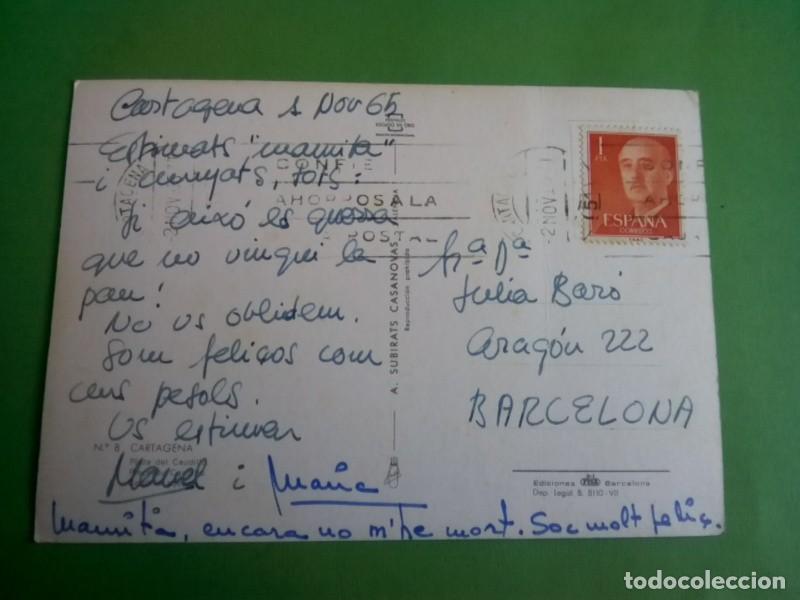 Cartagena 1 Nov 65
Estimats "mamita"
i cunyats, tots:
Si això és guerra
que no vingui la
pau!
No us oblidem.
Som feliços com
uns pesols.
Us estimen
Manel i Maria
Mamita, encara no m'he mort. Soc molt feliç.
Sra. Da.
Julia Baró
Aragón 222
BARCELONA
CARTAGENA
-2 NOV
CONFIE
AHORROS A LA
POSTAL
CARTAGENA
-2 NOV
1
PTA
ESPAÑA
CORREOS
A. SUBIRATS CASANOVAS
Reproducción prohibida
N.º 8. CARTAGENA
del Caudillo
Ediciones Barcelona
Dep. Legal B. 8110-VII
todocoleccion
todocoleccion.net